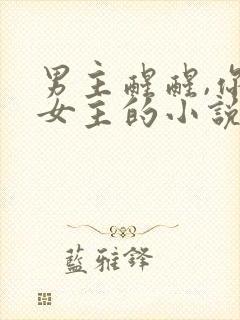 男主醒醒,你
女主的小説
藍雅鋒